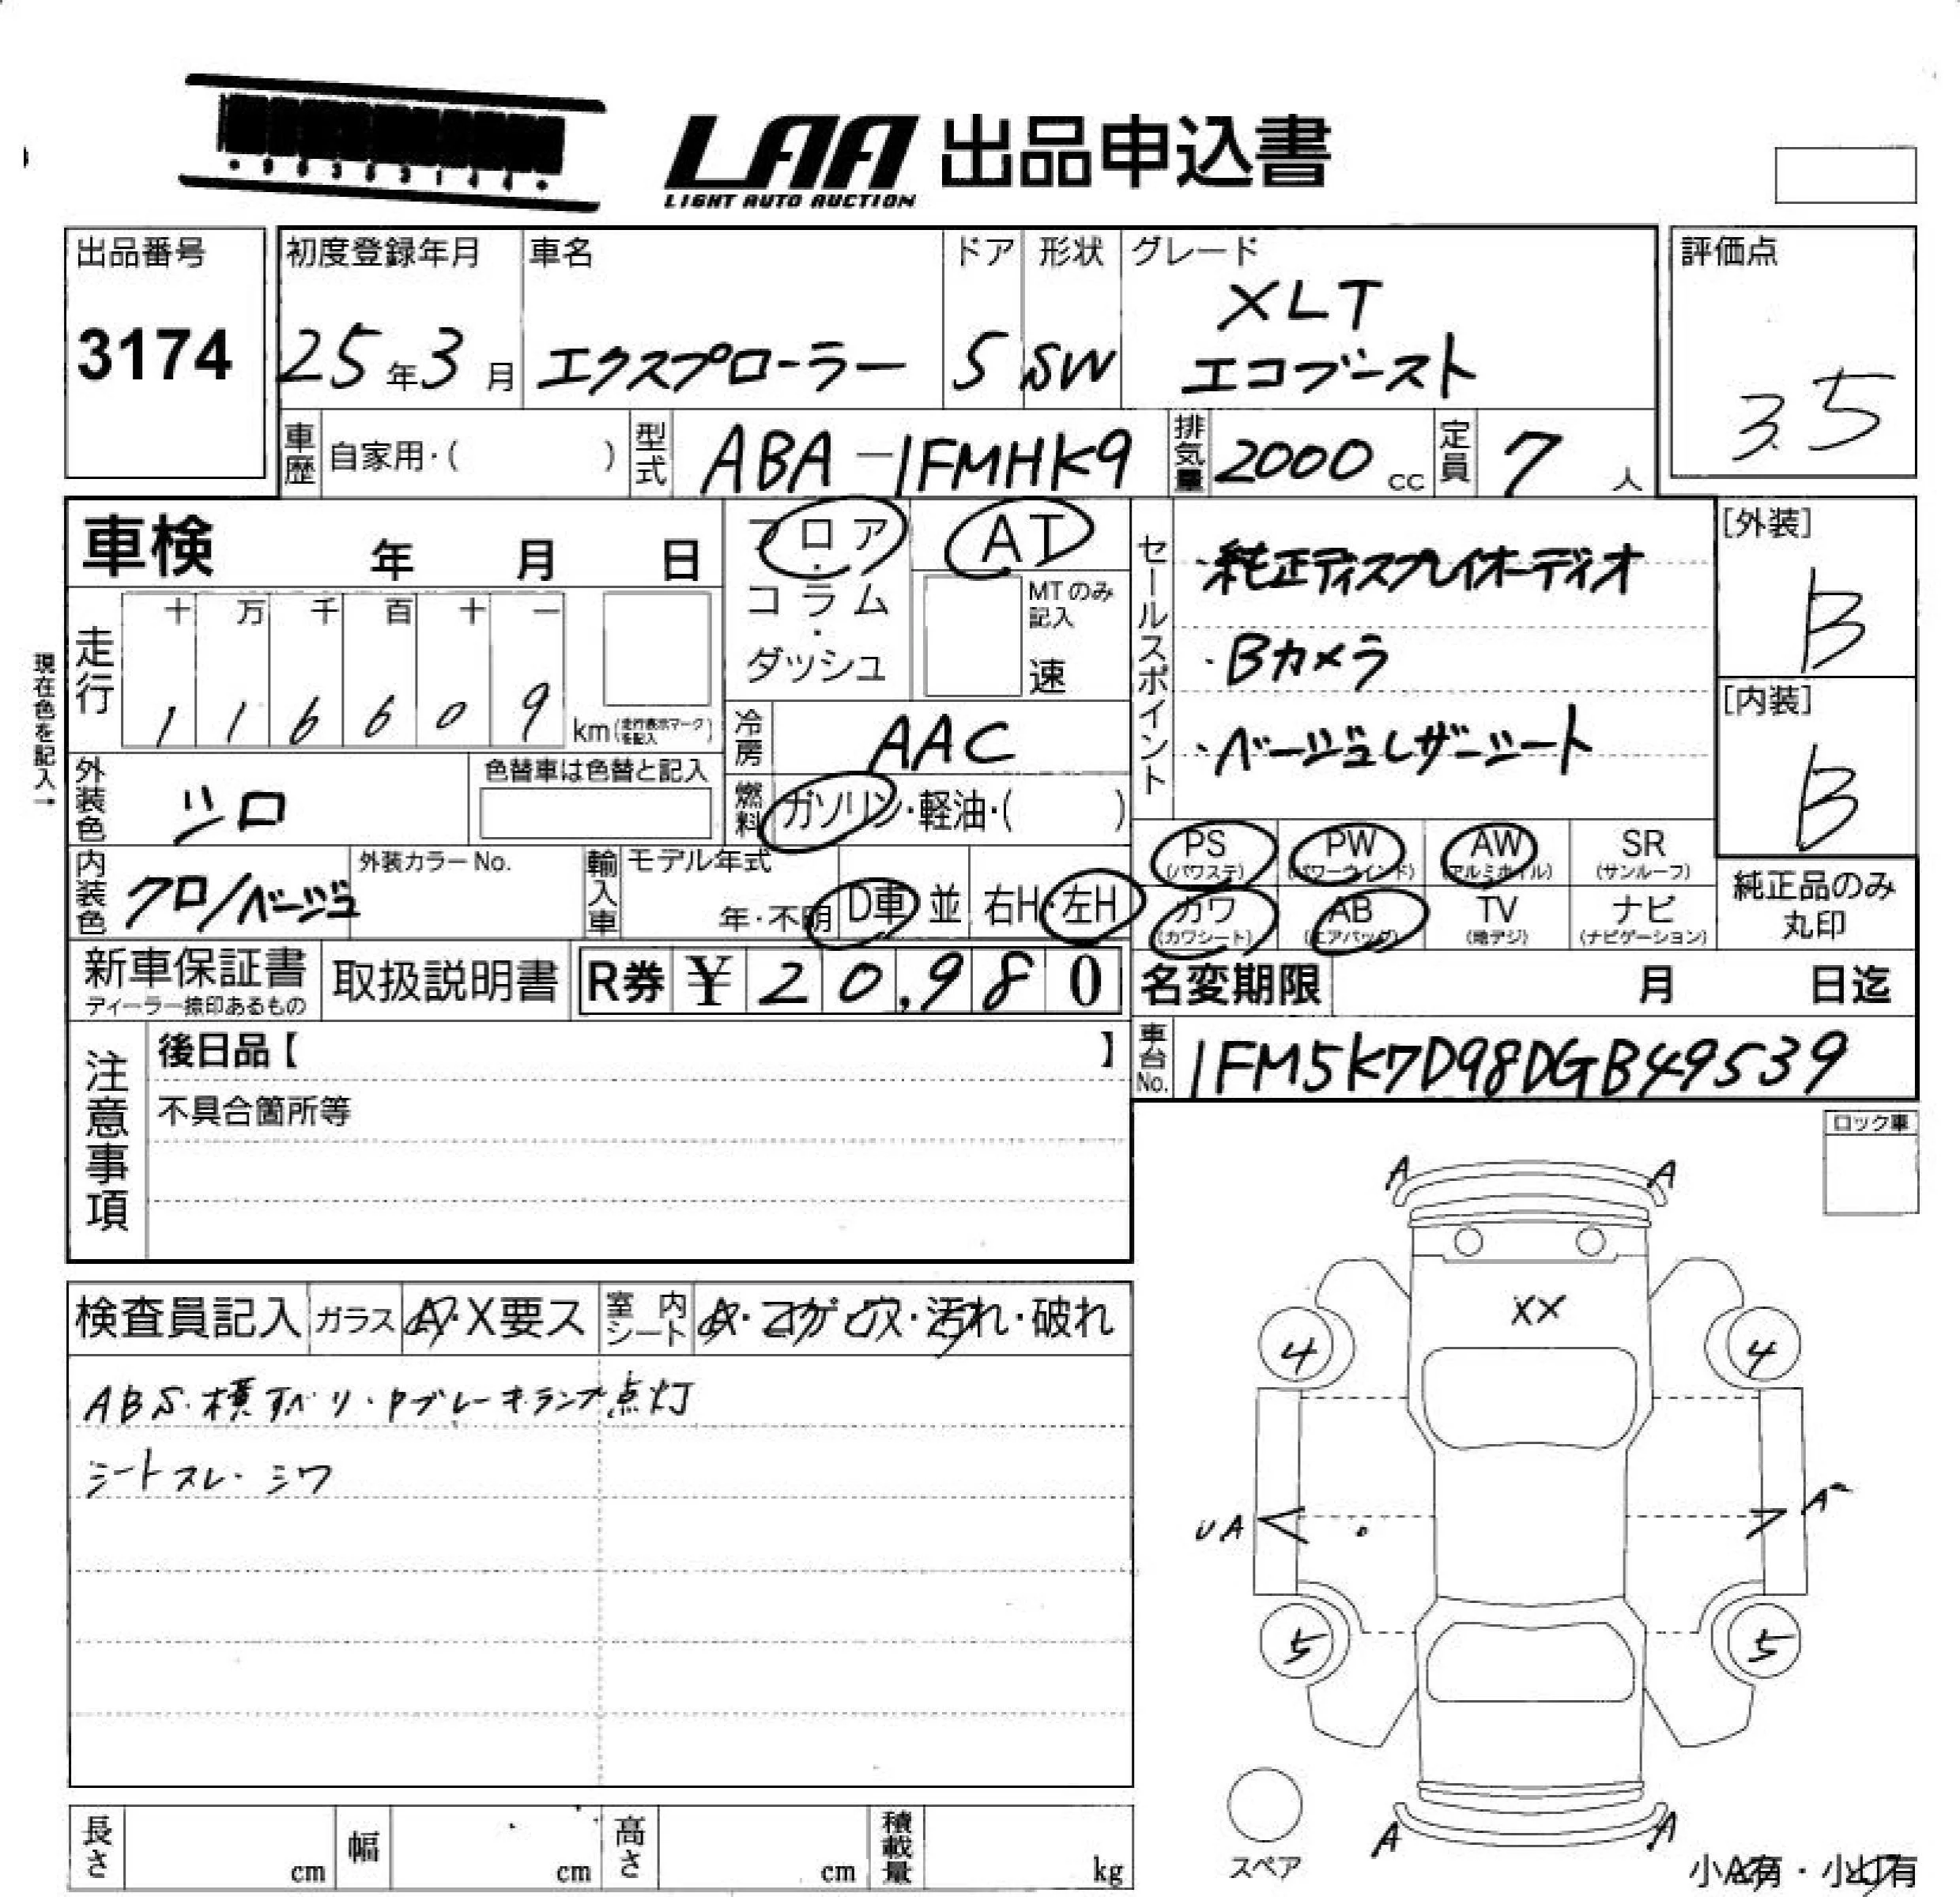 LAA 出品申込書
LIGHT AUTO AUCTION
出品番号 初度登録年月 車名 ドア 形状 グレード 評価点
3174 25年3月 エクスプローラー 5 SW XLT
エコブースト 3.5
車歴 自家用・( ) 型式 ABA-1FMHK9 排気量 2000 cc 定員 7 人
車検 年 月 日 フロア・コラム・ダッシュ AT
MTのみ記入 速
セールスポイント
・純正ディスプレイオーディオ
・Bカメラ
・ベージュレザーシート
[外装] B
[内装] B
現在色を記入→
走行 十 万 千 百 十 一
1 1 6 6 0 9 km(走行表示マークを記入)
冷房 AAC
外装色 シロ 色替車は色替と記入
燃料 ガソリン・軽油・( )
PS (パワステ) PW (パワーウインド) AW (アルミホイル) SR (サンルーフ)
カワ (カワシート) AB (エアバッグ) TV (地デジ) ナビ (ナビゲーション)
純正品のみ丸印
内装色 クロ/ベージュ 外装カラーNo. 輸入車 モデル年式 年・不明 D車 並 右H・左H
新車保証書 ディーラー捺印あるもの 取扱説明書 R券 ¥ 20,980 名変期限 月 日迄
注意事項 後日品【 】 車台No. 1FM5K7D98DGB49539
不具合箇所等
ロック車
検査員記入 ガラス A・X要ス 室内シート A・コゲ・穴・汚れ・破れ
ABS・横すべり・Pブレーキランプ点灯
シートスレ・シワ
A A
XX
4 4
UA A
5 5
A A
スペア
長さ cm 幅 cm 高さ cm 積載量 kg
小A有・小U有